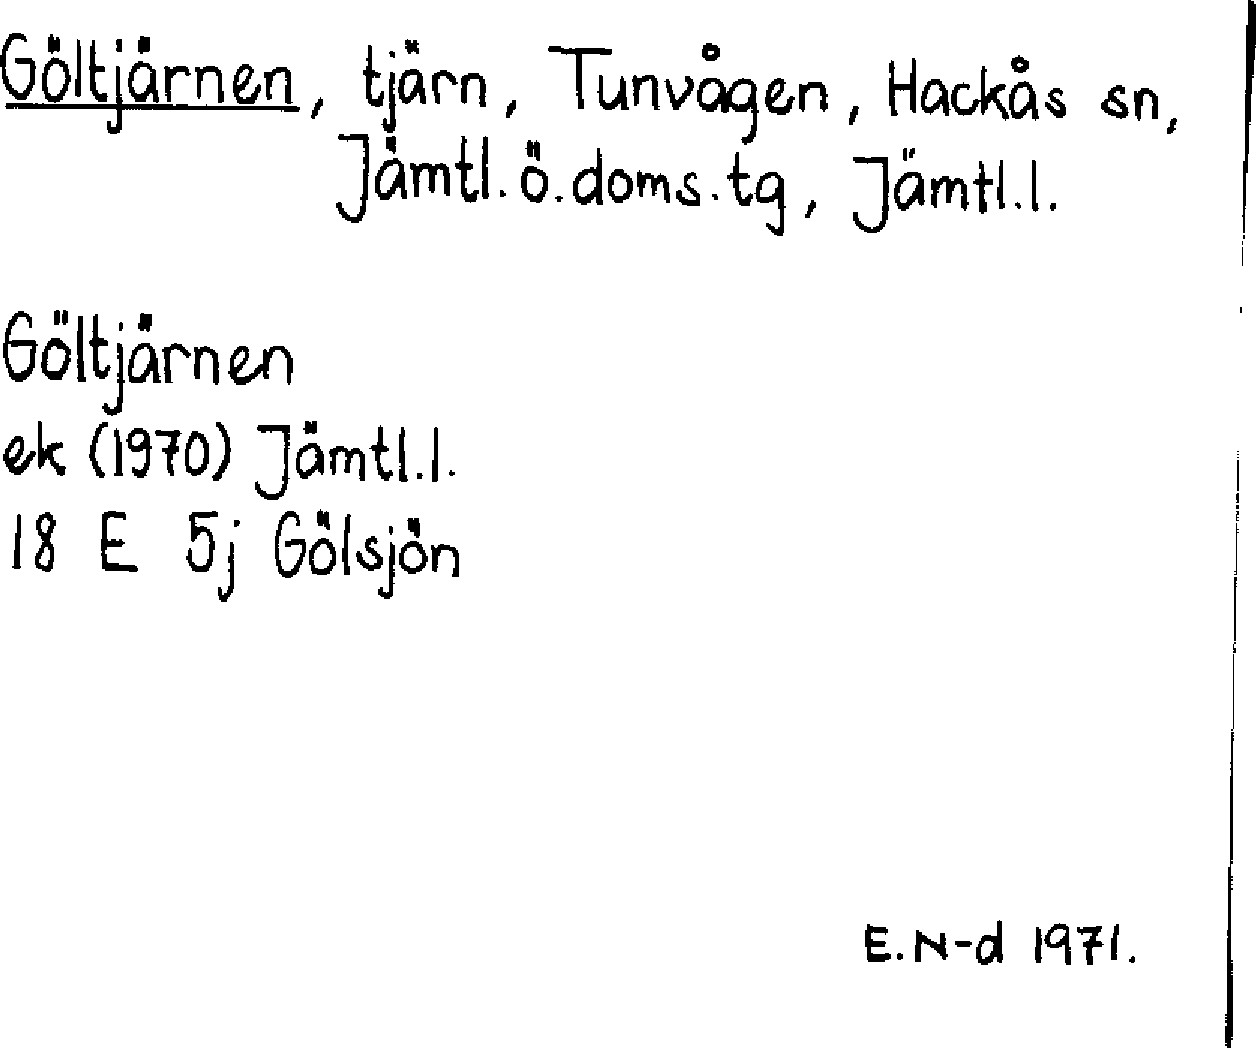 Göltjärnen, tjärn, Tunvågen, Hackås sn,
Jämtl. ö. doms. tg, Jämtl. l.
Göltjärnen
ek (1970) Jämtl. l.
18 E 5j Gölsjön
E. N-d 1971.